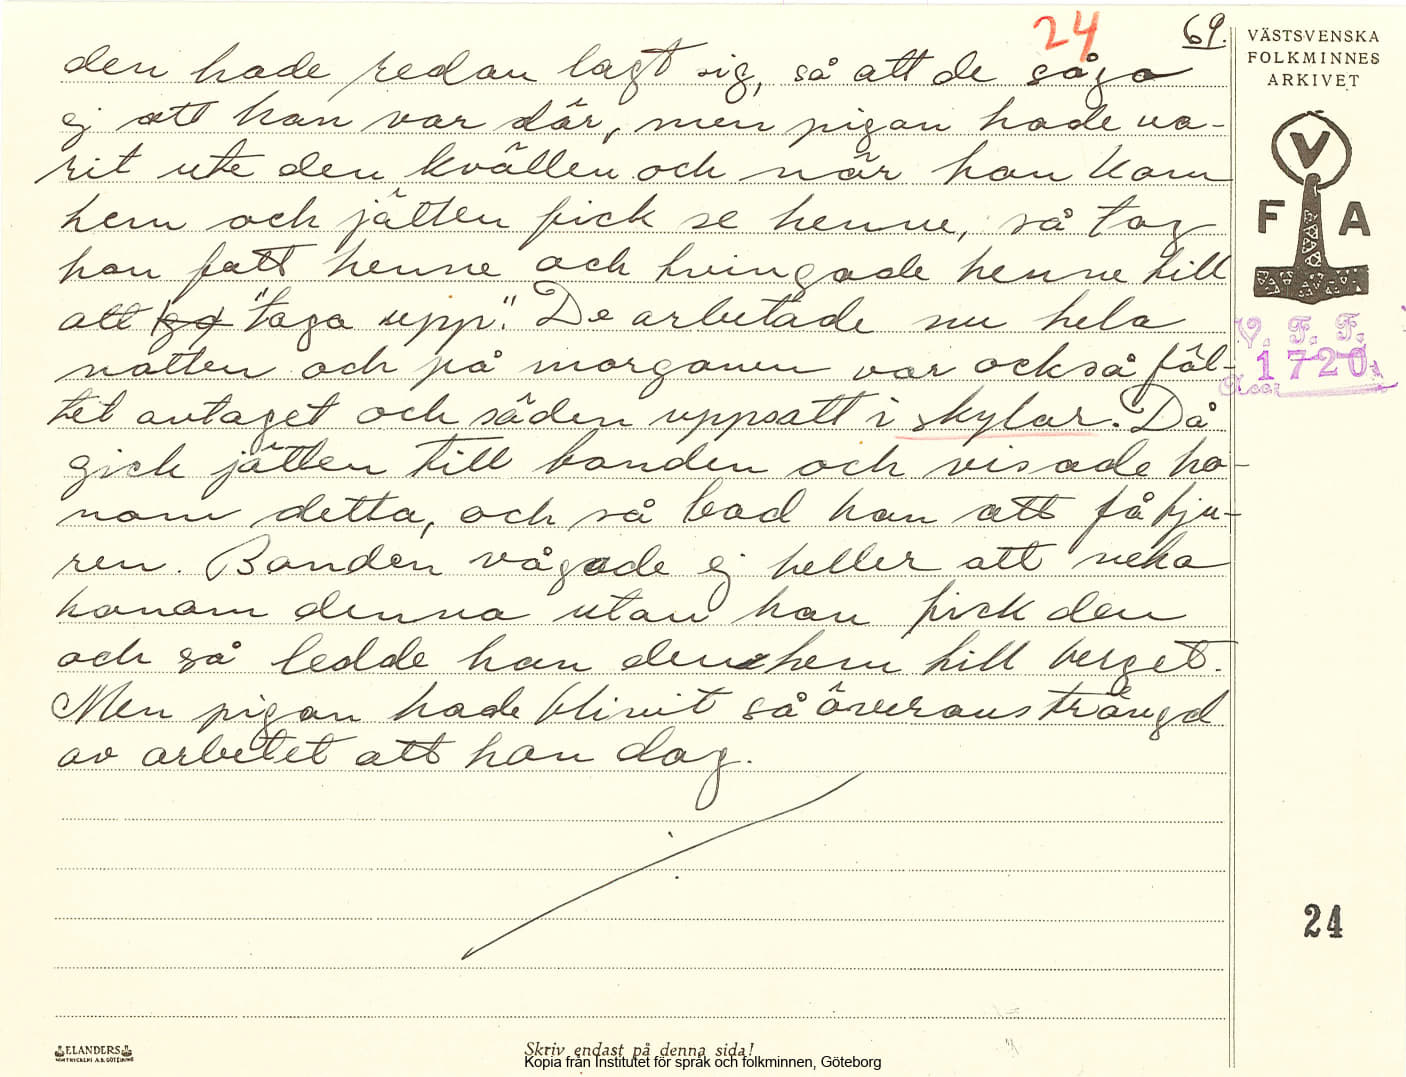 24
69.
VÄSTSVENSKA
FOLKMINNES
ARKIVET
den hade redan lagt sig, så att de sågo
ej att han var där, men pigan hade va-
rit ute den kvällen och när hon kom
hem och jätten fick se henne, så tog
han fatt henne och tvingade henne till
att "taga upp". De arbetade nu hela
natten och på morgonen var också fäl-
tet avtaget och säden uppsatt i skylar. Då
gick jätten till bonden och visade ho-
nom detta, och så bad han att få tju-
ren. Bonden vågade ej heller att neka
honom denna utan han fick den
och så ledde han den hem till berget.
Men pigan hade blivit så överansträngd
av arbetet att hon dog.
V
F A
V. F. F.
1720
24
ELANDERS
Skriv endast på denna sida!
Kopia från Institutet för språk och folkminnen, Göteborg